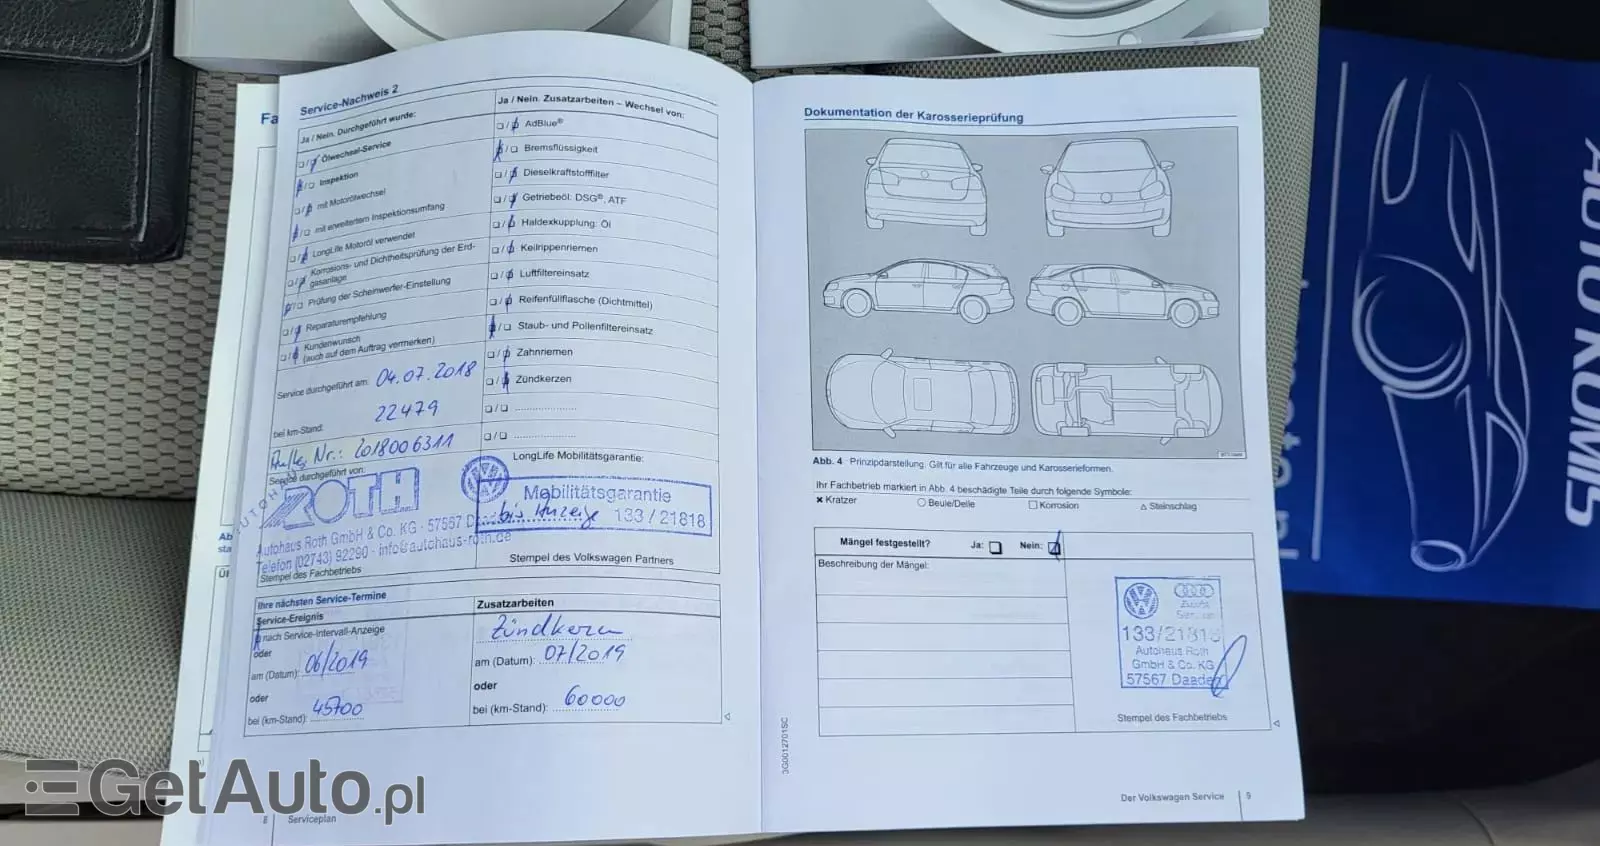 Fa
Service-Nachweis 2
Ja / Nein. Durchgeführt wurde:
□/□ Ölwechsel-Service
□/□ Inspektion
□/□ mit Motorölwechsel
□/□ mit erweitertem Inspektionsumfang
□/□ LongLife Motoröl verwendet
□/□ Korrosions- und Dichtheitsprüfung der Erd-
gasanlage
□/□ Prüfung der Scheinwerfer-Einstellung
□/□ Reparaturempfehlung
□/□ Kundenwunsch
(auch auf dem Auftrag vermerken)
Service durchgeführt am: 04.07.2018
22479
bei km-Stand:
Auftg. Nr.: 2018006311
Service durchgeführt von:
AUTOHAUS
ROTH
Autohaus Roth GmbH & Co. KG · 57567 Daaden
Telefon (02743) 92290 · info@autohaus-roth.de
Stempel des Fachbetriebs
Ja / Nein. Zusatzarbeiten – Wechsel von:
□/□ AdBlue®
□/□ Bremsflüssigkeit
□/□ Dieselkraftstofffilter
□/□ Getriebeöl: DSG®, ATF
□/□ Haldexkupplung: Öl
□/□ Keilrippenriemen
□/□ Luftfiltereinsatz
□/□ Reifenfüllflasche (Dichtmittel)
□/□ Staub- und Pollenfiltereinsatz
□/□ Zahnriemen
□/□ Zündkerzen
□/□ ....................
□/□ ....................
LongLife Mobilitätsgarantie:
Mobilitätsgarantie
bis Anzeige 133 / 21818
Stempel des Volkswagen Partners
Ihre nächsten Service-Termine
Service-Ereignis
nach Service-Intervall-Anzeige
oder
am (Datum): 06/2019
oder
bei (km-Stand): 45700
Zusatzarbeiten
Zündkerzen
am (Datum): 07/2019
oder
bei (km-Stand): 60000
8 Serviceplan
Dokumentation der Karosserieprüfung
Abb. 4 Prinzipdarstellung. Gilt für alle Fahrzeuge und Karosserieformen.
Ihr Fachbetrieb markiert in Abb. 4 beschädigte Teile durch folgende Symbole:
✖ Kratzer ○ Beule/Delle □ Korrosion △ Steinschlag
Mängel festgestellt? Ja: □ Nein: □
Beschreibung der Mängel:
133/21818
Autohaus Roth
GmbH & Co. KG
57567 Daaden
Stempel des Fachbetriebs
3G0012701SC
Der Volkswagen Service 9
AUTO KOMIS
GetAuto.pl